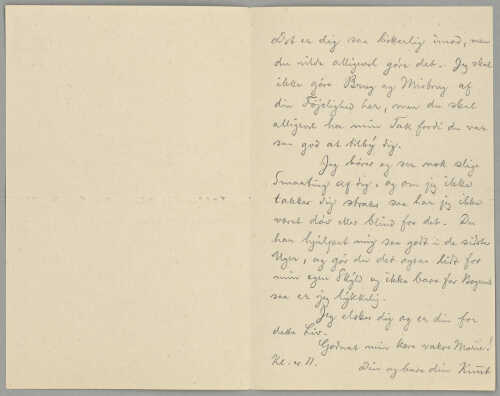 Det er dig saa inderlig imod, men
du vilde alligevel gøre det. Jeg skal
ikke gøre Brug og Misbrug af
din Føjelighed her, men du skal
alligevel ha min Tak fordi du var
saa god at tilby dig.
Jeg hører og ser nok slige
Smaating af dig, og om jeg ikke
takker dig straks saa har jeg ikke
været døv eller blind for det. Du
har hjulpet mig saa godt i de sidste
Uger, og gør du det ogsaa lidt for
min egen Skyld og ikke bare for Bogens
saa er jeg lykkelig.
Jeg elsker dig og er din for
dette Liv.
Godnat min kære vakre Marie!
Kl. er 11. Din og bare din Knut